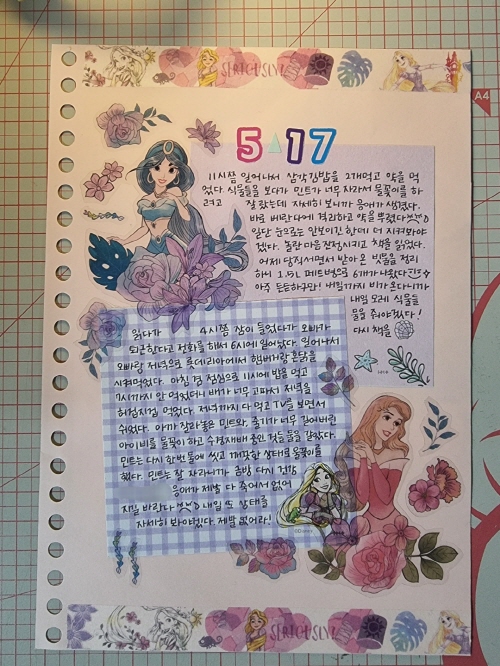 SERIOUSLY!
A4
5 17
11시쯤 일어나서 삼각김밥을 2개먹고 약을 먹
었다 식물들을 보다가 민트가 너무 자라서 물꽂이를 하
려고 잘랐는데 자세히 보니까 응애가 생겼다.
바로 베란다에 격리하고 약을 뿌렸다
일단 눈으로는 안보이긴 한데 더 지켜봐야
겠다. 놀란 마음 진정시키고 책을 읽었다.
어제 당직서면서 받아 온 빗물을 정리
하니 1.5L 페트병으로 6개가 나왔다
아주 든든하구만! 내일까지 비가 온다니까
내일 모레 식물들
물을 줘야겠다!
다시 책을
읽다가 4시쯤 잠이 들었다가 오빠가
퇴근한다고 전화를 해서 6시에 일어났다. 일어나서
오빠랑 저녁으로 롯데리아에서 햄버거랑
시켜먹었다. 아침 겸 점심으로 11시에 밥을 먹고
7시까지 안 먹었더니 배가 너무 고파서 저녁을
허겁지겁 먹었다. 저녁까지 다 먹고 TV를 보면서
쉬었다. 아까 잘라놓은 민트와, 줄기가 너무 길어버린
아이비를 물꽂이 하고 수경재배 중인 것들 물을 갈았다.
민트는 다시 한번 물에 씻고 깨끗한 상태로 물꽂이를
했다. 민트는 잘 자라니까 금방 다시
응애가 제발 다 죽어서 없어
지길 바란다 내일 또 상태를
자세히 봐야겠다. 제발 없어라!
©Disney
SERIOUSLY!